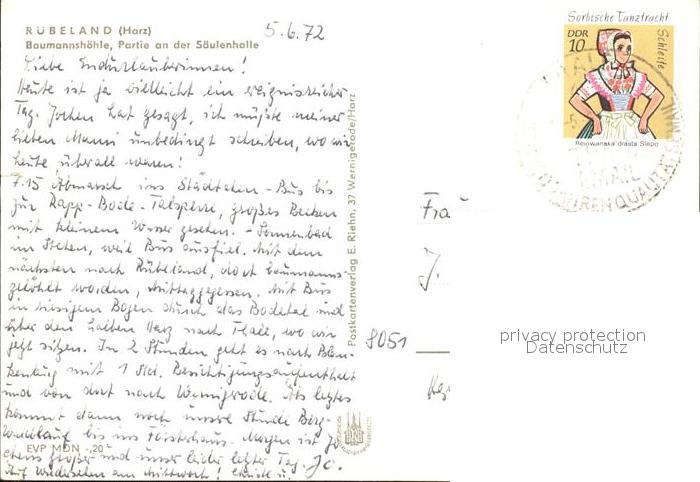 RÜBELAND (Harz)
Baumannshöhle, Partie an der Säulenhalle
5.6.72
Liebe Endurlauberinnen!
Heute ist ja vielleicht ein ereignisreicher
Tag. Jochen hat gesagt, ich müßte meiner
lieben Mami unbedingt schreiben, wo wir
heute überall waren!
7.15 Abmarsch ins Städtchen - Bus bis
zur Rapp-Bode-Talsperre, großes Becken
mit kleinem Wasser gesehen. - Sonnenbad
im Stehen, weil Bus ausfiel. Mit dem
nächsten nach Rübeland, dort baumanns-
gehöhlt worden, Mittaggegessen. Mit Bus
in riesigem Bogen durch das Bodetal und
über den halben Harz nach Thale, wo wir
jetzt sitzen. In 2 Stunden geht es nach Blan-
kenburg mit 1 Std. Besichtigungsaufenthalt
und von dort nach Wernigerode. Als letztes
kommt dann noch unsre Stunde Berg-
bis ins Försterhaus. Morgen ist Jo-
chens großer und unser leider letzter Tag. Jo.
Auf Wiedersehen am Mittwoch!
EVP MDN -,20
Postkartenverlag E. Riehn, 37 Wernigerode/Harz
Sorbische Tanztracht
DDR
10
Schleife
Rejowanska drasta Slepo
EMAIL
QUALITÄT
Frau
J.
8051
privacy protection
Datenschutz